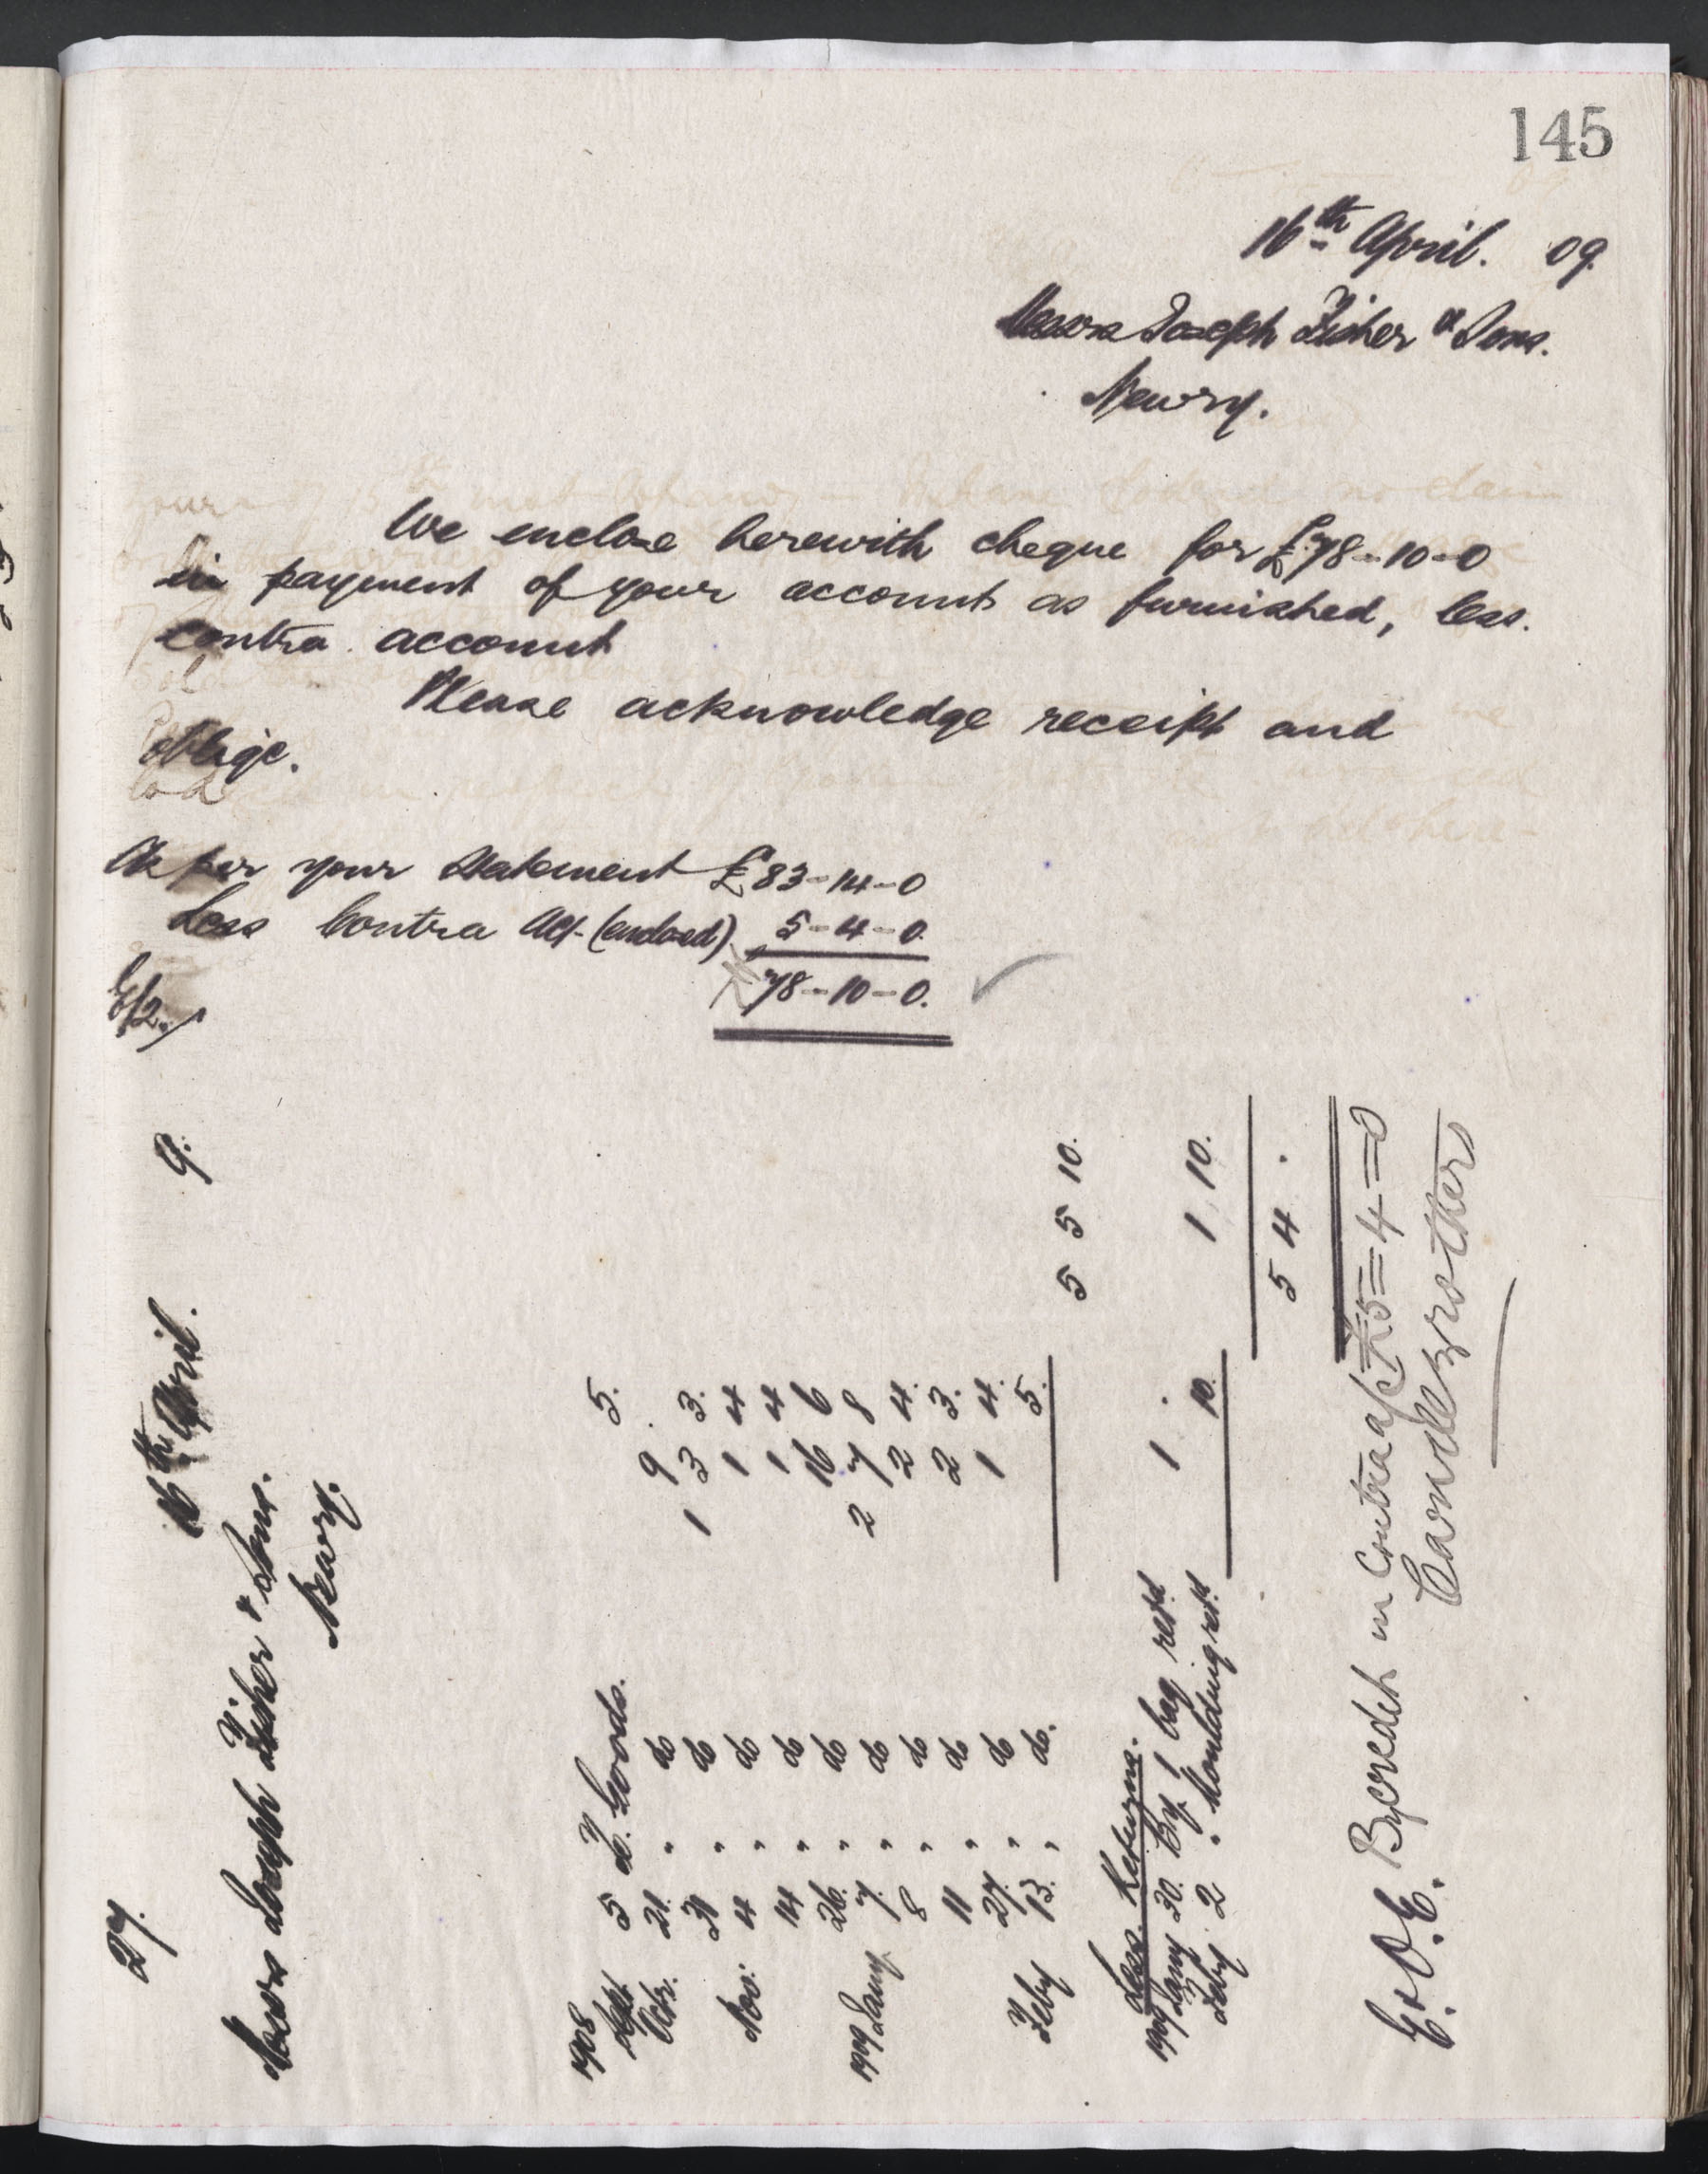 145
16th April. 09.
Messrs Joseph Fisher & Sons.
Newry.
We enclose herewith cheque for £78-10-0
in payment of your account as furnished, less.
contra account
Please acknowledge receipt and
oblige.
As per your Statement £83-14-0
Less Contra Act. (enclosed) 5-4-0.
78-10-0.
E/2.
27. 16th April. 9.
Messrs Joseph Fisher & Sons.
Newry.
1908
Sept. 5 To Goods. 5.
Octr. 21. " do 9 .
31 " do 1 3 3.
Nov: 4 " do 1 4
14 " do 1 4
26. " do 16 6
1909 Jany 7. " do 2 7 8
8 " do 2 4.
11 " do 2 3.
27. " do 1 4.
Feby 13. " do. 5. 5 5 10.
Less Returns.
1909 Jany 30. By 1 bag retd. 1 .
Feby 2 " Moulding retd. 10. 1 10.
5 4 .
E. & O. E. By credit in Contra a/c £5=4=0
Carvill Brothers